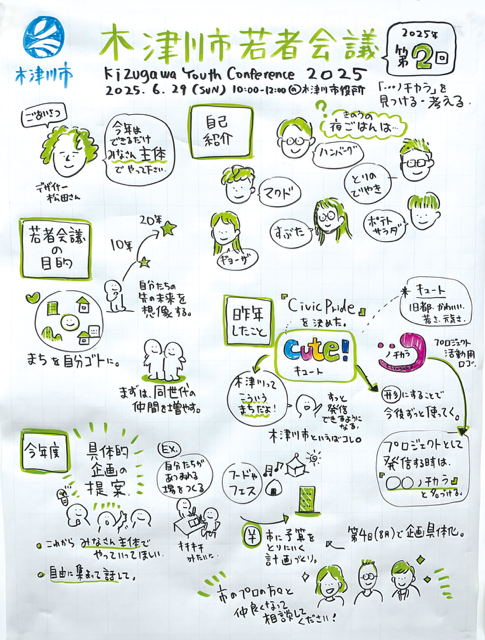 木津川市
木津川市若者会議
2025年
第2回
Kizugawa Youth Conference 2025
2025. 6. 29 (SUN) 10:00-12:00 @木津川市役所
「…ノチカラ」を
見つける・考える.
ごあいさつ
今年は
できるだけ
みなさん主体
でやって下さい.
デザイナー
松田さん
自己
紹介
?
きのうの
夜ごはんは…
ハンバーグ
マクド
とりの
てりやき
ギョーザ
すぶた
ポテト
サラダ
若者会議
の
目的
10年
20年
自分たちの
先の未来を
想像する。
まちを自分ゴトに。
まずは、同世代の
仲間を増やす。
昨年
したこと
『Civic Pride』
を決めた。
Cute!
キュート
* キュート
旧都・かわいい・
若さ・元気さ.
ノチカラ
プロジェクト
活動用
ロゴ.
木津川って
こういう
まちだよ!
ずっと
発信
できるように
なる.
木津川市といえばコレ○
形にすることで
今後ずっと使ってく。
プロジェクトとして
発信する時は、
「○○ノチカラ」
と名づける。
今年度
具体的
企画の
提案.
Ex.
自分たちが
あつまれる
場をつくる
フードや
フェス
・これから みなさん主体で
やっていってほしい.
・自由に集まって話して。
¥
市に予算を
とりにいく
計画づくり。
第4回(8月)で企画具体化。
市のプロの方々と
仲良くなって
相談して
ください!